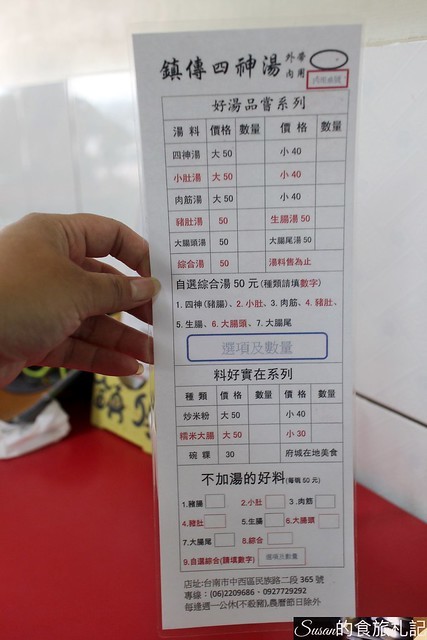 鎮傳四神湯 外帶
內用
好湯品嘗系列
湯料 價格 數量 價格 數量
四神湯 大 50 小 40
小肚湯 大 50 小 40
肉筋湯 大 50 小 40
豬肚湯 50 生腸湯 50
大腸頭湯 50 大腸尾湯 50
綜合湯 50 湯料售為止
自選綜合湯 50 元 (種類請填數字)
1. 四神 (豬腸)、2. 小肚、3. 肉筋、4. 豬肚、
5. 生腸、6. 大腸頭、7. 大腸尾
選項及數量
料好實在系列
種類 價格 數量 價格 數量
炒米粉 大 50 小 40
糯米大腸 大 50 小 30
碗粿 30 府城在地美食
不加湯的好料(每碼 50 元)
1.豬腸 2.小肚 3.肉筋
4.豬肚 5.生腸 6.大腸頭
7.大腸尾 8.綜合
9.自選綜合(請填數字) 選項及數量
店址:台南市中西區民族路二段 365 號
專線：(06)2209686、0927729292
每逢週一公休(不殺豬),農曆節日除外
Susan的食旅札記